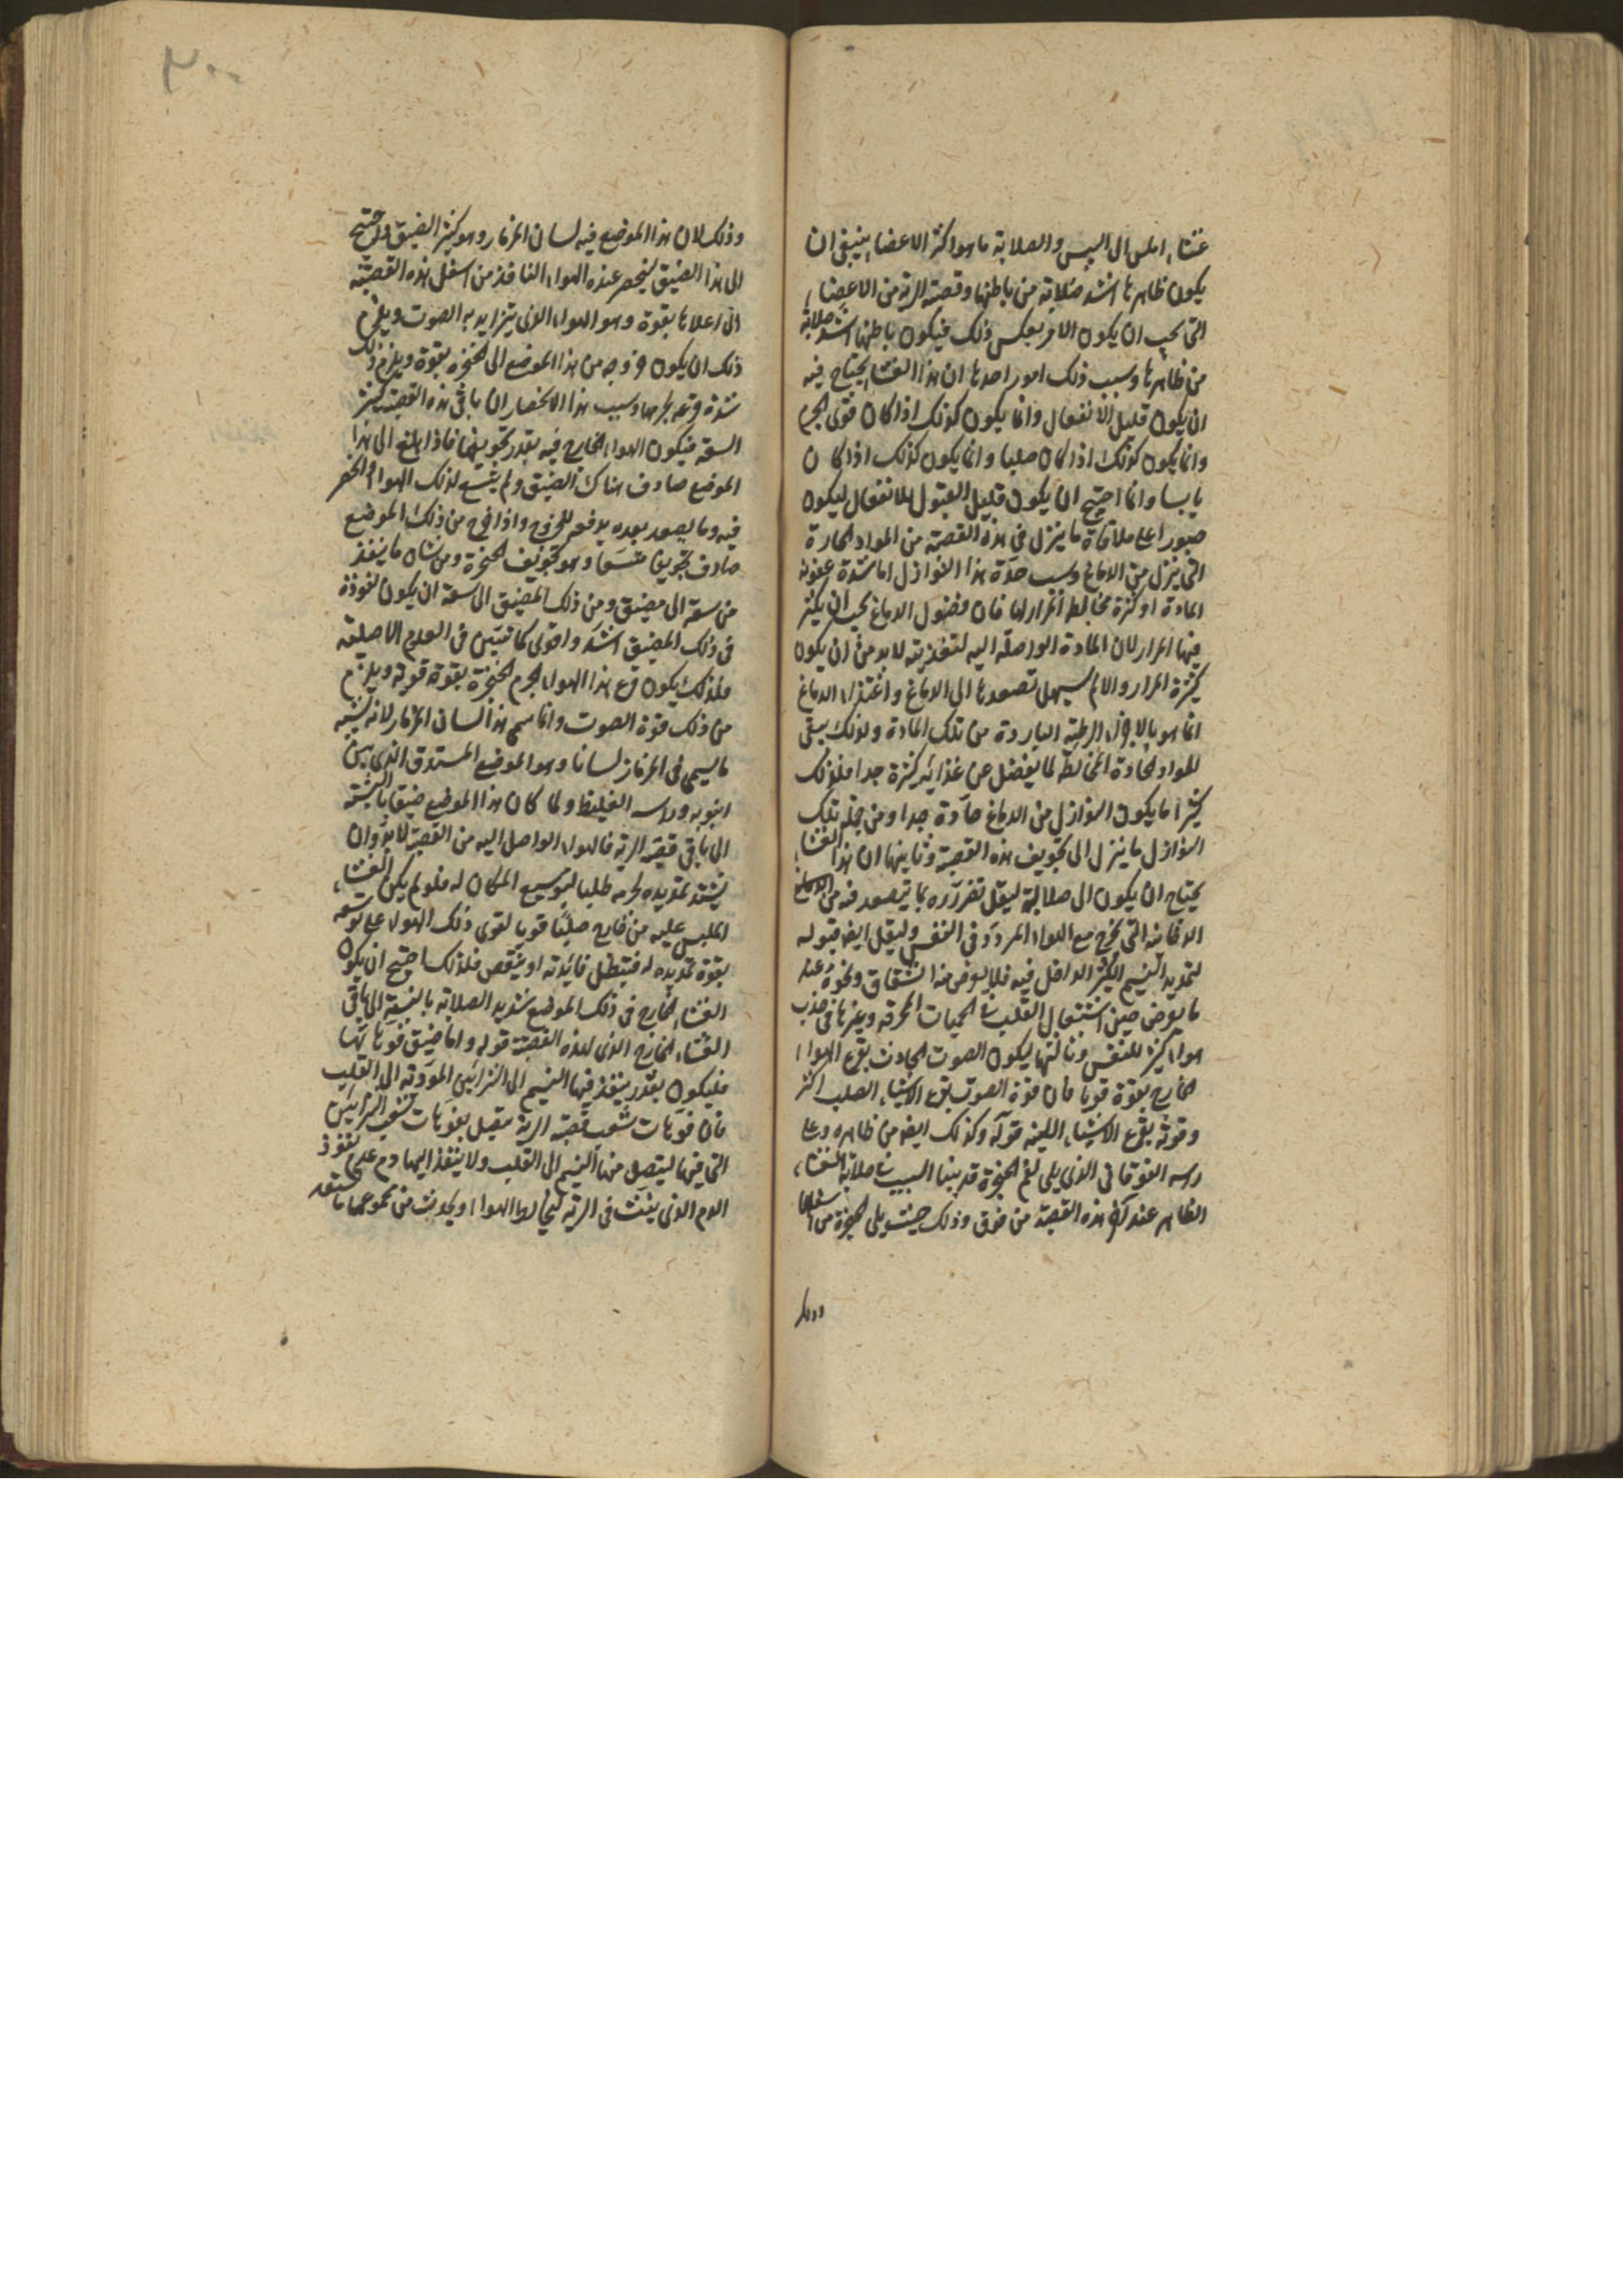 غشاء املس الى اليبس والصلابة ما هو اكثر الاعضاء ينبغى ان
يكون ظاهرها اشد صلابة من باطنها وقصبة الرئة من الاعضاء
التى يجب ان يكون الامر بعكس ذلك فيكون باطنها اشد صلابة
من ظاهرها وسبب ذلك امور احدها ان هذا الغشاء يحتاج فيه
ان يكون قليل الانفعال وانما يكون كذلك اذا كان قوى الجرم
وانما يكون كذلك اذا كان صلبا وانما يكون كذلك اذا كان
يابسا وانما احتيج ان يكون قليل القبول للانفعال ليكون
صبورا على ملاقاة ما ينزل فى هذه القصبة من المواد الحارة
التى ينزل من الدماغ وسبب حدة هذا النوازل اما شدة عفونة
المادة او كثرة مخالط المرار لها فان فضول الدماغ يجب ان يكثر
فيها المرار لان المادة الواصلة اليه لتغذيته لا بد من ان يكون
كثيرة المرار والا لم يسهل تصعدها الى الدماغ واغتذاء الدماغ
انما هو بالاجزاء الرطبة الباردة من تلك المادة ولذلك يبقى
المواد الحادة المخالطة لما يفضل عن غذائه كثيرة جدا فلذلك
كثيرا ما يكون النوازل من الدماغ حادة جدا ومن جملة تلك
النوازل ما ينزل الى تجويف هذه القصبة وثانيها ان هذا الغشاء
يحتاج ان يكون الى صلابة ليقل تضرره بما يتصعد فيه من الدماغ
الدخانية التى تخرج مع الهواء المردود فى النفس وليقل ايضا قبوله
لتمديد النسيم الكثير الداخل فيه فلا يعرض منه انشقاق ونحوه عند
ما يعرض حين اشتعال القلب فى الحميات المحرقة وغيرها فى جذب
هواء كثير للتنفس وثالثها ليكون الصوت الحادث بقرع الهواء
الخارج بقوة قويا فان قوة الصوت بقرع الاشياء الصلب اكثر
وقوته بقرع الاشياء اللينة قوله وكذلك ايضا من ظاهره وعلى
راسه الفوقانى الذى يلى فم الحنجرة قد بينا السبب فى صلابة الغشاء
الظاهر عند آخر هذه القصبة من فوق وذلك حيث يلى الحنجرة من اسفلها
وذلك
وذلك لان هذا الموضع فيه لسان المزمار وهو كثير الضيق وانما احتيج
الى هذا الضيق لينحصر عنده الهواء النافذ من اسفل هذه القصبة
الى اعلاها بقوة وهو الهواء الذى يتزايد به الصوت ويلزم
ذلك ان يكون خروجه من هذا الموضع الى الحنجرة بقوة ويلزم ذلك
شدة قرعه لجرمها وسبب هذا الانحصار ان باقى هذه القصبة كثير
السعة فيكون الهواء الخارج فيه بقدر تجويفها فاذا بلغ الى هذا
الموضع صادف هناك الضيق ولم يتسع لذلك الهواء انحصر
فيه وما يصعد بعده يدفعه للخروج واذا خرج من ذلك الموضع
صادف تجويفا متسعا وهو تجويف الحنجرة ومن شان ما ينفذ
من سعة الى مضيق ومن ذلك المضيق الى سعة ان يكون نفوذه
فى ذلك المضيق اشد واقوى كما تبين فى العلوم الاصلية
فلذلك يكون قرع هذا الهواء لجرم الحنجرة بقوة قوية ويلزم
من ذلك قوة الصوت وانما سمى هذا لسان المزمار لانه يشبه
ما يسمى فى المزمار لسانا وهو الموضع المستدق الذى بين
انبوبه وراسه الغليظ ولما كان هذا الموضع ضيقا بالنسبة
الى باقى قصبة الرئة فالهواء الواصل اليه من القصبة لا بد وان
يشتد تمديده لجرمه طلبا لتوسيع المكان له فلو لم يكن الغشاء
الملبس عليه من خارج صلبا قويا لقوى ذلك الهواء على توسعه
بقوة تمديده له فتبطل فائدته او ينقص فلذلك احتيج ان يكون
الغشاء الخارج فى ذلك الموضع شديد الصلابة بالنسبة الى باقى
الغشاء الخارج الذى لهذه القصبة قوله واما ضيق فوهاتها
فليكون بقدر ينفذ فيها النسيم الى الشرايين المؤدية الى القلب
فان فوهات شعب قصبة الرئة متصل بفوهات شعب الشرايين
التى فيها ليتصل منها النسيم الى القلب ولا ينفذ اليها دم على نفوذ
الدم الذى ينفث فى الرئة ليخالط الهواء ويحدث من مجموعهما ما يستعد